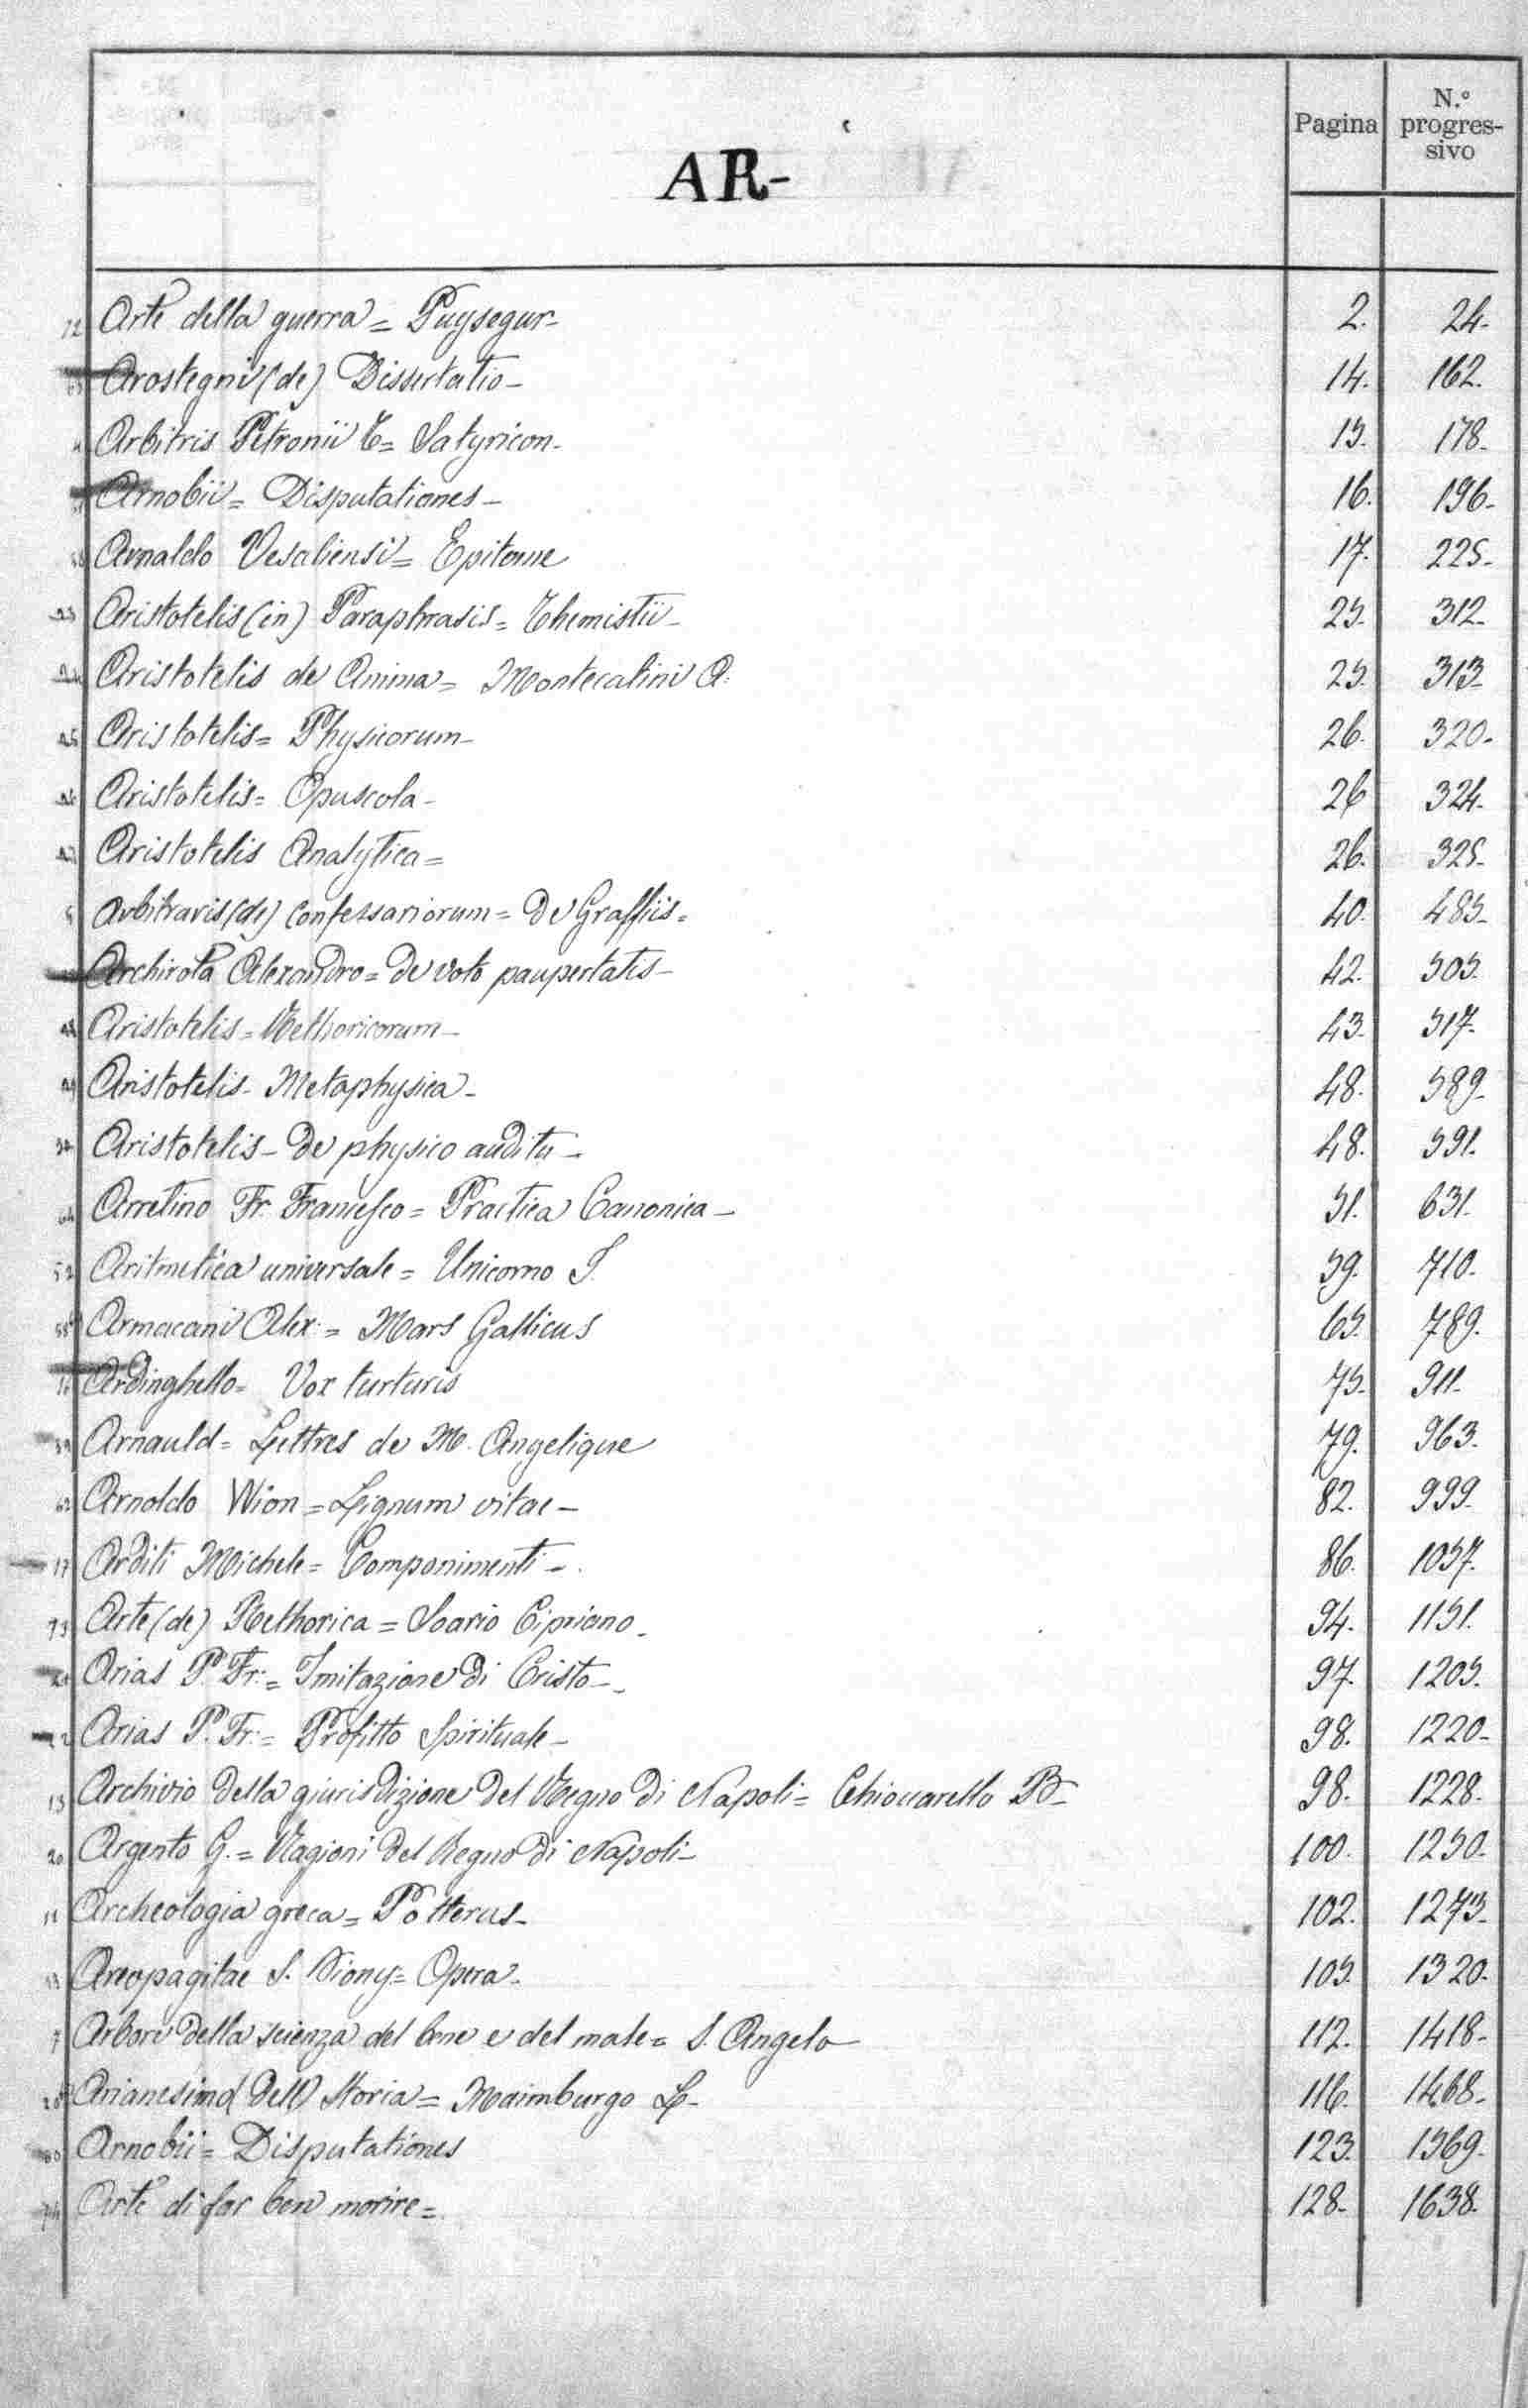 Pagina N.° progres-sivo
AR-
72 Arte della guerra = Puysegur- 2. 24-
Arostegni (de) Dissertatio- 14. 162.
Arbitris Petronii T= Satyricon- 15. 178-
Arnobii = Disputationes- 16. 196-
Arnaldo Vesaliensi = Epitome 17. 225-
23 Aristotelis (in) Paraphrasis = Themistii- 25. 312-
24 Aristotelis de Anima = Montecatini A. 25. 313-
25 Aristotelis = Physicorum- 26. 320-
26 Aristotelis = Opuscola- 26 324-
27 Aristotelis Analytica = 26. 325-
5 Arbitraris (de) Confessariorum = De Graffiis = 40. 485-
Archirota Alexandro = De voto paupertatis- 42. 505.
28 Aristotelis = Rethoricorum- 43. 517-
29 Aristotelis- Metaphysica- 48. 589-
30 Aristotelis- De physico auditu- 48. 591.
64 Arretino Fr. Francesco = Practica Canonica- 51. 631.
52 Aritmetica universale = Unicorno J. 59. 710-
55 Armacani Alex: = Mars Gallicus 65. 789.
16 Ardinghello = Vox turturis 75. 911-
59 Arnauld = Lettres de M. Angelique 79. 963.
62 Arnoldo Wion = Lignum vitae- 82. 999-
17 Arditi Michele = Componimenti-. 86. 1057.
73 Arte (de) Rethorica = Soario Cipriano- 94. 1151.
21 Arias P. Fr: = Imitazione di Cristo- 97. 1205.
22 Arias P. Fr: = Profitto Spirituale- 98. 1220-
13 Archivio della giurisdizione del Regno di Napoli = Chiouarello B- 98. 1228-
20 Argento G. = Ragioni del Regno di Napoli- 100. 1250-
11 Archeologia greca = Potterus- 102. 1273-
Areopagitae S. Diony = Opera- 105. 1320-
7 Arbore della scienza del bene e del male = S. Angelo 112. 1418-
Arianesimo dell Storia = Maimburgo L- 116. 1468-
60 Arnobii = Disputationes 123. 1569-
74 Arte di far ben morire = 128- 1638-